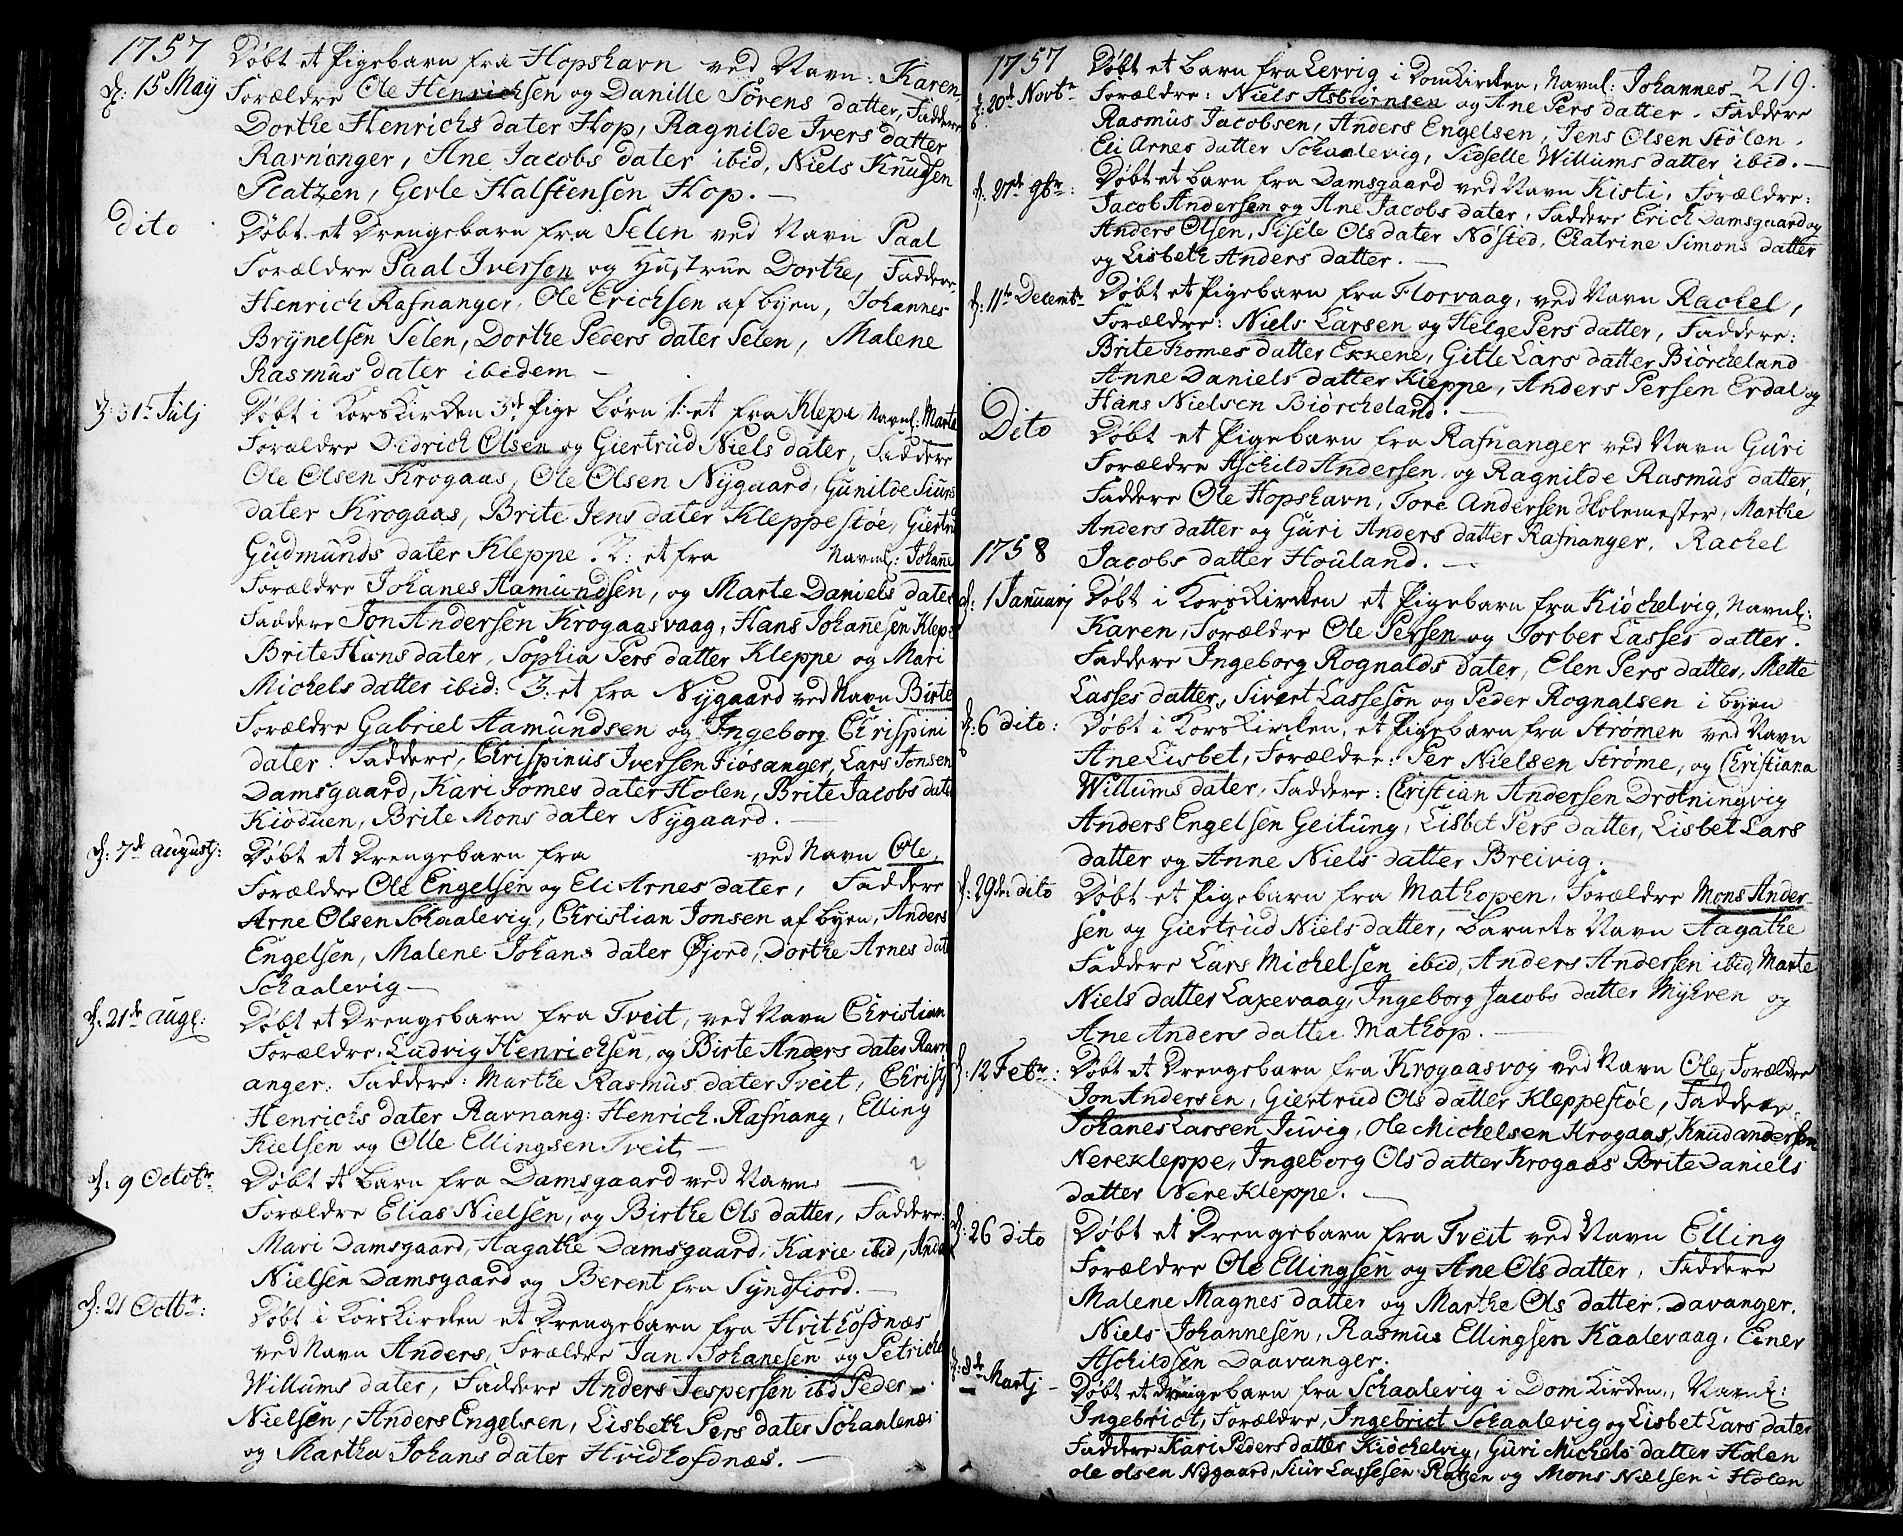 1757
d: 15 May
Døbt et Pigebarn fra Hopshavn ved Navn: Karen
Forældre Ole Henrichsen og Danille Sørens datter, Faddere
Dorthe Henrichs dater Hop, Ragnilde Ivers datter
Ravnanger, Ane Jacobs dater ibid, Niels Knudsen
Platzen, Gerle Halstensen Hop. —
Dito
Døbt et Drengebarn fra Selen ved Navn Paal
Forældre Paal Iversen og Hustrue Dorthe, Faddere,
Henrich Rafnanger, Ole Erichsen af byen, Johannes
Brynelsen Selen, Dorthe Peders dater Selen, Malene
Rasmus dater ibedem —
d: 31t Julj
Døbt i Korskirken 3de Pige børn 1: et fra Klepe Navnl: Marta
Forældre Didrich Olsen og Giertrud Niels dater, Faddere
Ole Olsen Krogaas, Ole Olsen Nygaard, Gunilde Siurs
dater Krogaas, Brite Jens dater Kleppestøe, Giertru
Gudmunds dater Kleppe. 2: et fra Navnl: Johane
Forældre Johanes Aamundsen, og Marte Daniels dater
Faddere Jon Andersen Krogaasvaag, Hans Johannesen Klep
Brite Hans dater, Sophia Pers datter Kleppe og Mari
Michels datter ibid: 3: et fra Nygaard ved Navn Birte
Forældre Gabriel Aamundsen og Ingeborg Chrispini
dater. Faddere, Chrispinus Iversen Fiøsanger, Lars Jonsen
Damsgaard, Kari Tomes dater Holen, Brite Jacobs date
Kioduen, Brite Mons dater Nygaard. —
d: 7de augustj:
Døbt et Drengebarn fra ved Navn Ole,
Forældre Ole Engelsen og Eli Arnes dater, Faddere
Arne Olsen Schaalevig, Christian Jonsen af byen, Anders
Engelsen, Malene Johans dater Øjord, Dorthe Arnes dat
Schaalevig —
d: 21de aug:
Døbt et Drengebarn fra Tveit, ved Navn Christian
Forældre: Ludvig Henrichsen, og Birte Anders dater Ravn
anger: Faddere: Marthe Rasmus dater Tveit, Christj
Henrichs dater Ravnang: Henrich Rafnang, Elling
Kielsen og Olle Ellingsen Tveit —
d: 9 Octobr
Døbt et barn fra Damsgaard ved Navn: —
Forældre Elias Nielsen, og Birthe Ols datter, Faddere:
Mari Damsgaard, Aagathe Damsgaard, Karie ibid, Anders
Nielsen Damsgaard og Berent fra Syndfiord. —
d: 21 Octbr:
Døbt i Korskirken et Drengebarn fra Hvithofdnæs
ved Navn Anders, Forældre Jan Johanesen og Petriche
Willums dater, Faddere Anders Jespersen ibd Peder
Nielsen, Anders Engelsen, Lisbeth Pers dater Schaalenæs
og Martha Johans dater Hvidhofdnæs. —
1757
219.
d: 20de Novbr
Døbt et barn fra Lervig i Domkirken, Navnl: Johannes
Forældre: Niels Asbiørnsen og Ane Pers datter. Faddere
Rasmus Jacobsen, Anders Engelsen, Jens Olsen Stølen.
Eli Arnes datter Schaalevig, Sidselle Willums datter ibid. —
d: 27de 9br:
Døbt et barn fra Damsgaard ved Navn Kisti, Forældre:
Jacob Andersen og Ane Jacobs dater, Faddere Erich Damsgaard og
Anders Olsen, Sisele Ols dater Nøsted, Chatrine Simons datter
og Lisbeth Anders datter. —
d: 11te Decembr
Døbt et Pigebarn fra Florvaag, ved Navn Rachel,
Forældre: Niels Larsen og Helge Pers datter, Faddere:
Brite Tomes datter Ekkene, Gitle Lars datter Biørcheland
Anne Daniels datter Kleppe, Anders Persen Erdal og
Hans Nielsen Biørcheland. —
Dito
Døbt et Pigebarn fra Rafnanger ved Navn Guri
Forældre Aschild Andersen, og Ragnilde Rasmus datter,
Faddere Ole Hopshavn, Tore Andersen Skolemester, Marthe
Anders datter og Guri Anders datter Rafnanger. Rachel
Jacobs datter Houland. —
1758
d: 1 Januarj
Døbt i Korskirken et Pigebarn fra Kiøchelvig, Navnl:
Karen, Forældre Ole Persen og Torber Lasses datter.
Faddere Ingeborg Rognalds dater, Elen Pers datter, Mette
Lasses datter, Sivert Lassesøn og Peder Rognalsen i byen
d: 6 dito:
Døbt i Korskirken, et Pigebarn fra Strømen ved Navn
Ane Lisbet, Forældre: Per Nielsen Strøme, og Christiana
Willums dater, Faddere: Christian Andersen Drotningvig
Anders Engelsen Geitung, Lisbet Pers datter, Lisbet Lars
datter og Anne Niels datter Breivig.
d: 29de dito
Døbt et Pigebarn fra Mathopen, Forældre Mons Ander-
sen og Giertrud Niels datter, barnets Navn Aagathe
Faddere Lars Michelsen ibid, Anders Andersen ibid, Marte
Niels datter Laxevaag, Ingeborg Jacobs datter Myhren og
Ane Anders datter Mathop. —
d: 12 Febr:
Døbt et Drengebarn fra Krogaasvog ved Navn Ole, Forældre
Jon Andersen, Giertrud Ols datter Kleppestøe, Faddere
Johanes Larsen Juvig, Ole Michelsen Krogaas, Knud andersen
Nerekleppe, Ingeborg Ols datter Krogaas Brite Daniels
datter Nere Kleppe. —
d: 26 dito
Døbt et Drengebarn fra Tveit ved Navn Elling
Forældre Ole Ellingsen og Ane Ols datter, Faddere
Malene Magnes datter og Marthe Ols datter. Davanger.
Niels Johannesen, Rasmus Ellingsen Kaalevaag, Einer
Aschildsen Daavanger.
d: 8de Martj
Døbt et Drengebarn fra Schaalevig i Dom Kirken, Navnl:
Ingebrict, Forældre, Ingebrict Schaalevig og Lisbet Lars dater
Faddere Kari Peders datter Kiøchelvig, Guri Michels datter Holen
ole olsen Nygaard, Siur Lassesen Platzen og Mons Nielsen i Holen